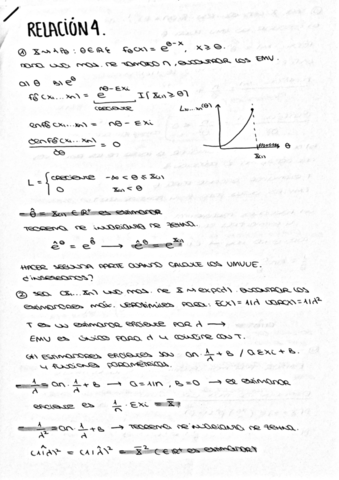 RELACIÓN 4.
① X ~ {Pθ : θ ∈ ℝ} fθ(x) = e^(θ-x), x ≥ θ.
DADO UNA MAS. DE TAMAÑO n, ENCONTRAR LOS EMV.
a) θ b) e^θ
fθⁿ(x1...xn) = e^(nθ - Σxi) I{X(1) ≥ θ}
CRECIENTE
= nθ - Σxi
= 0
∂θ
L = { CRECIENTE -∞ < θ ≤ X(1)
0 X(1) < θ
θ̂ = X(1) ES ESTIMADOR
TEOREMA DE ZEHNA.
ê^θ = e^θ̂ → ê^θ = e^X(1)
HACER SEGUNDA PARTE CUANDO CALCULE LOS UMVUE.
② SEA (X1...Xn) UNA MAS. DE X ~ exp(λ). ENCONTRAR LOS
ESTIMADORES MÁX. VEROSÍMILES PARA: E(X) = 1/λ VAR(X) = 1/λ²
T ES UN ESTIMADOR EFICIENTE POR λ →
EMV ES ÚNICO PARA λ Y COINCIDE CON T.
ESTIMADORES EFICIENTES SON an 1/λ + B / a Σxi + B.
Y FUNCIONES PARAMÉTRICAS.
1/λ = an 1/λ + B → a = 1/n, B = 0 → EL ESTIMADOR
EFICIENTE ES 1/n Σxi = X̄
1/λ² = an 1/λ + B → TEOREMA DE ZEHNA.
(1/λ²) = (1/λ)² = X̄²